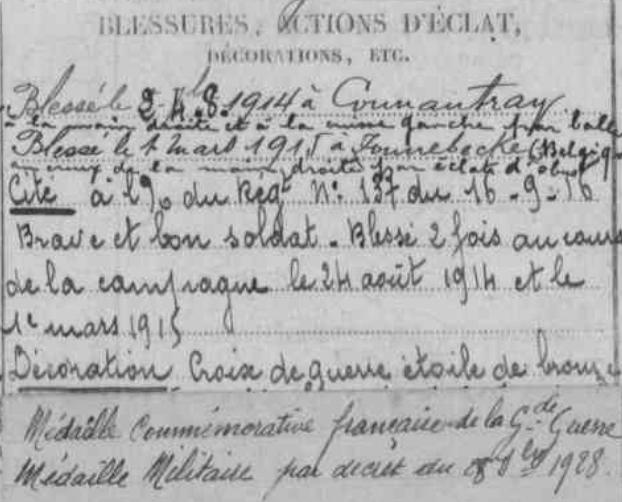 BLESSURES, ACTIONS D'ÉCLAT,
DÉCORATIONS, ETC.
Blessé le 24.8.1914 à Connantray
à la main droite et à la cuisse gauche par balle
Blessé le 1 mars 1915 à Zonnebecke (Belgique
au creux de la main droite par éclats d'obus
Cité à l'O/ du Régt N° 137 du 16-9-16
Brave et bon soldat. Blessé 2 fois au cours
de la campagne le 24 août 1914 et le
1er mars 1915
Décoration Croix de guerre étoile de bronze
Médaille Commémorative française de la Gde Guerre
Médaille Militaire par décret du 1928.